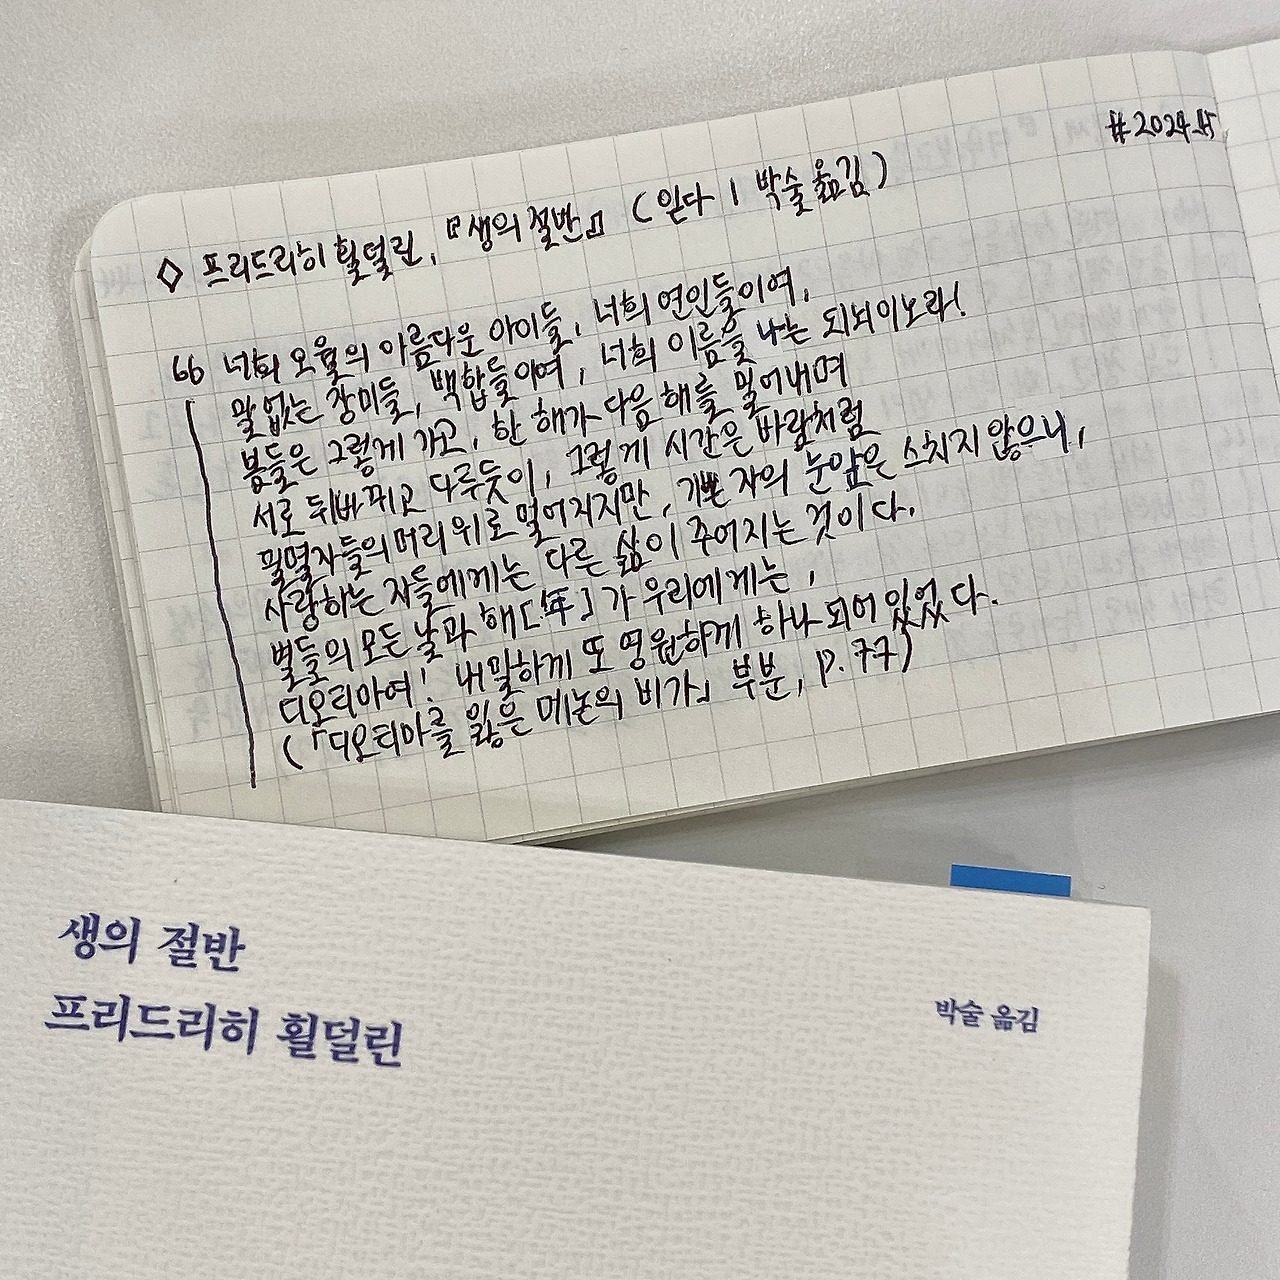 #2024.45
◇ 프리드리히 횔덜린, 『생의 절반』 (읻다 | 박술 옮김)
“ 너희 오월의 아름다운 아이들, 너희 연인들이여,
말없는 장미들, 백합들이여, 너희 이름을 나는 되뇌이노라!
봄들은 그렇게 가고, 한 해가 다음 해를 밀어내며
서로 뒤바뀌고 다투듯이, 그렇게 시간은 바람처럼
필멸자들의 머리 위로 멀어지지만, 기쁜 자의 눈앞은 스치지 않으니,
사랑하는 자들에게는 다른 삶이 주어지는 것이다.
별들의 모든 날과 해[年]가 우리에게는,
디오티마여! 내밀하게 또 영원하게 하나 되어 있었다.
(「디오티마를 잃은 메논의 비가」 부분, p.77)
생의 절반
프리드리히 횔덜린
박술 옮김